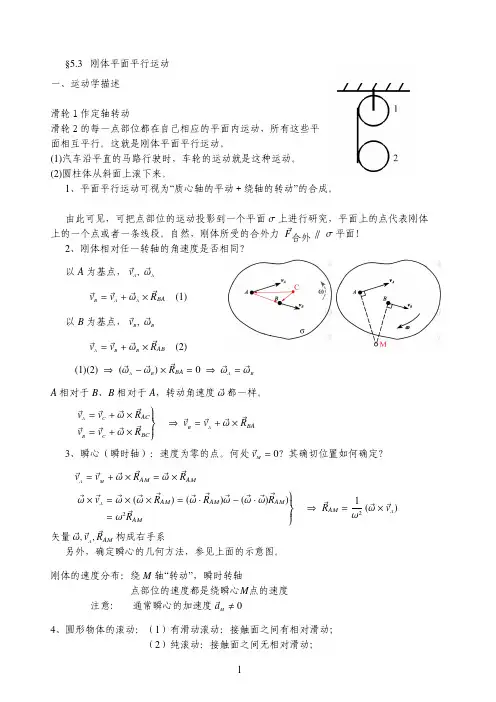 §5.3 刚体平面平行运动
一、运动学描述
滑轮 1 作定轴转动
滑轮 2 的每一点部位都在自己相应的平面内运动，所有这些平
面相互平行。这就是刚体平面平行运动。
(1)汽车沿平直的马路行驶时，车轮的运动就是这种运动。
(2)圆柱体从斜面上滚下来。
1
2
1、平面平行运动可视为“质心轴的平动 + 绕轴的转动”的合成。
由此可见，可把点部位的运动投影到一个平面 σ 上进行研究，平面上的点代表刚体
上的一个点或者一条线段。自然，刚体所受的合外力 F⃗合外 ∥ σ 平面！
2、刚体相对任一转轴的角速度是否相同？
以 A 为基点， v⃗_A, ω⃗_A
v⃗_B = v⃗_A + ω⃗_A × R⃗_BA (1)
以 B 为基点， v⃗_B, ω⃗_B
v⃗_A = v⃗_B + ω⃗_B × R⃗_AB (2)
(1)(2) ⇒ (ω⃗_A − ω⃗_B) × R⃗_BA = 0 ⇒ ω⃗_A = ω⃗_B
A v_A C B v_B ω σ
A v_A B v_B ω M
A 相对于 B、B 相对于 A，转动角速度 ω⃗ 都一样。
v⃗_A = v⃗_C + ω⃗ × R⃗_AC
v⃗_B = v⃗_C + ω⃗ × R⃗_BC } ⇒ v⃗_B = v⃗_A + ω⃗ × R⃗_BA
3、瞬心（瞬时轴）：速度为零的点。何处 v⃗_M = 0？其确切位置如何确定？
v⃗_A = v⃗_M + ω⃗ × R⃗_AM = ω⃗ × R⃗_AM
ω⃗ × v⃗_A = ω⃗ × (ω⃗ × R⃗_AM) = (ω⃗ · R⃗_AM)ω⃗ − (ω⃗ · ω⃗)R⃗_AM)
= ω²R⃗_AM } ⇒ R⃗_AM = 1/ω² (ω⃗ × v⃗_A)
矢量 ω⃗, v⃗_A, R⃗_AM 构成右手系
另外，确定瞬心的几何方法，参见上面的示意图。
刚体的速度分布：绕 M 轴“转动”，瞬时转轴
点部位的速度都是绕瞬心M点的速度
注意： 通常瞬心的加速度 a⃗_M ≠ 0
4、圆形物体的滚动：（1）有滑动滚动：接触面之间有相对滑动；
（2）纯滚动：接触面之间无相对滑动；
1